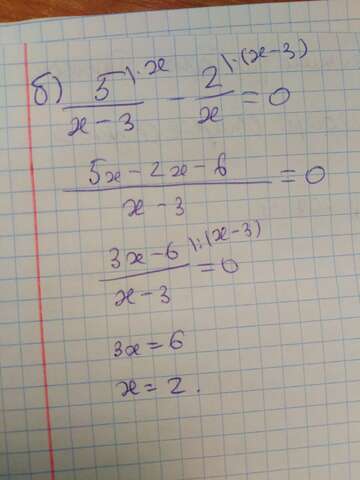 б) 5\·x/(x-3) - 2\·(x-3)/x = 0
(5x-2x-6)/(x-3) = 0
(3x-6)\:(x-3)/(x-3) = 0
3x = 6
x = 2.